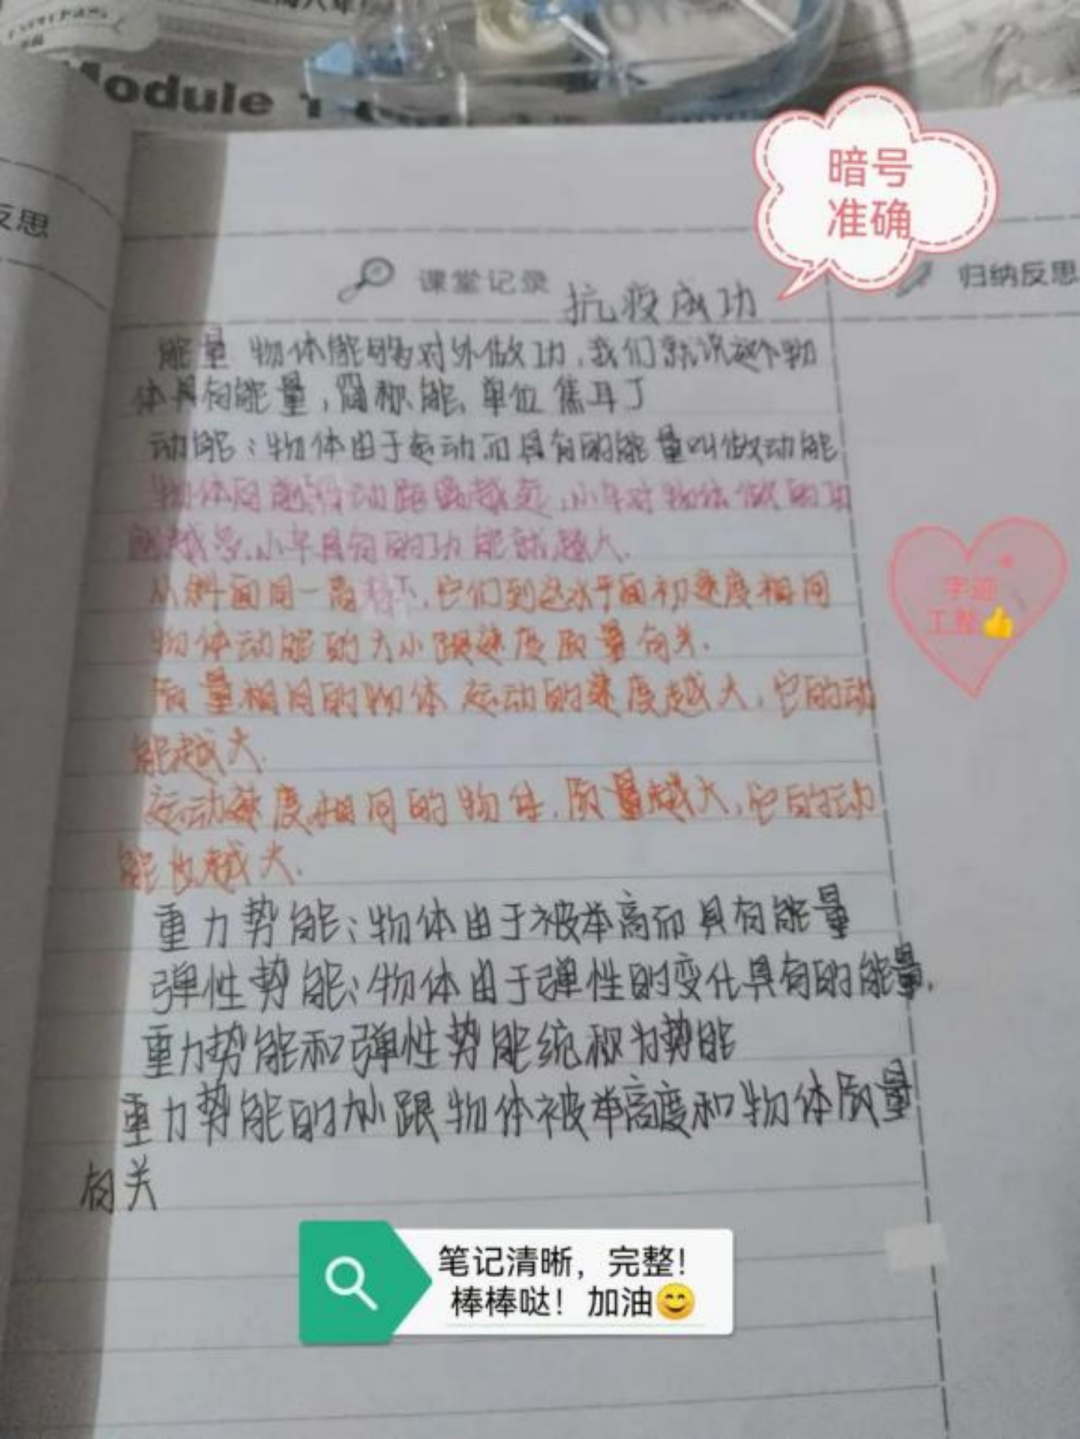 Module 1
暗号
准确
反思
课堂记录
归纳反思
抗疫成功
能量 物体能够对外做功,我们就说这个物
体具有能量,简称能,单位焦耳J
动能:物体由于运动而具有的能量叫做动能
动距离越远,小车对物体做的功
越多,小车具有的功能就越大.
字迹
工整👍
从斜面同一高 ,它们到达水平面初速度相同
物体动能的大小跟速度质量有关.
质量相同的物体 运动的速度越大,它的动
能越大.
运动速度相同的物体,质量越大,它的动
能也越大.
重力势能:物体由于被举高而具有能量
弹性势能:物体由于弹性的变化具有的能量.
重力势能和弹性势能统称为势能
重力势能的大小跟物体被举高度和物体质量
有关
笔记清晰,完整!
棒棒哒!加油😊